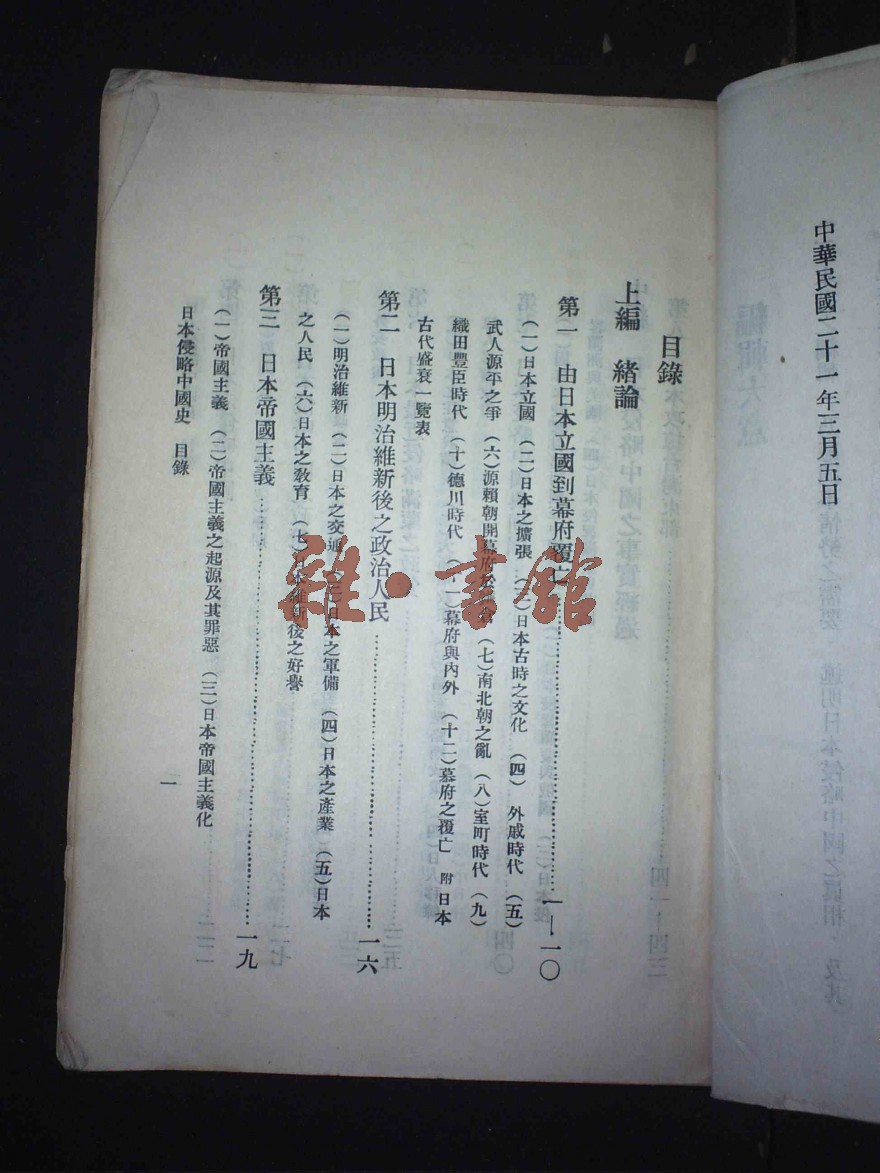 中華民國二十一年三月五日
目錄
上編 緒論
第一 由日本立國到幕府覆亡……一—一〇
(一)日本立國 (二)日本之擴張 (三)日本古時之文化 (四) 外戚時代 (五)
武人源平之爭 (六)源賴朝開幕府 (七)南北朝之亂 (八)室町時代 (九)
織田豐臣時代 (十)德川時代 (十一)幕府與內外 (十二)幕府之覆亡 附 日本
古代盛衰一覽表
第二 日本明治維新後之政治人民……一六
(一)明治維新 (二)日本之交通 (三)日本之軍備 (四)日本之產業 (五)日本
之人民 (六)日本之教育 (七)日本維新後之好譽
第三 日本帝國主義……一九
(一)帝國主義 (二)帝國主義之起源及其罪惡 (三)日本帝國主義化
日本侵略中國史 目錄
一
雜·書館